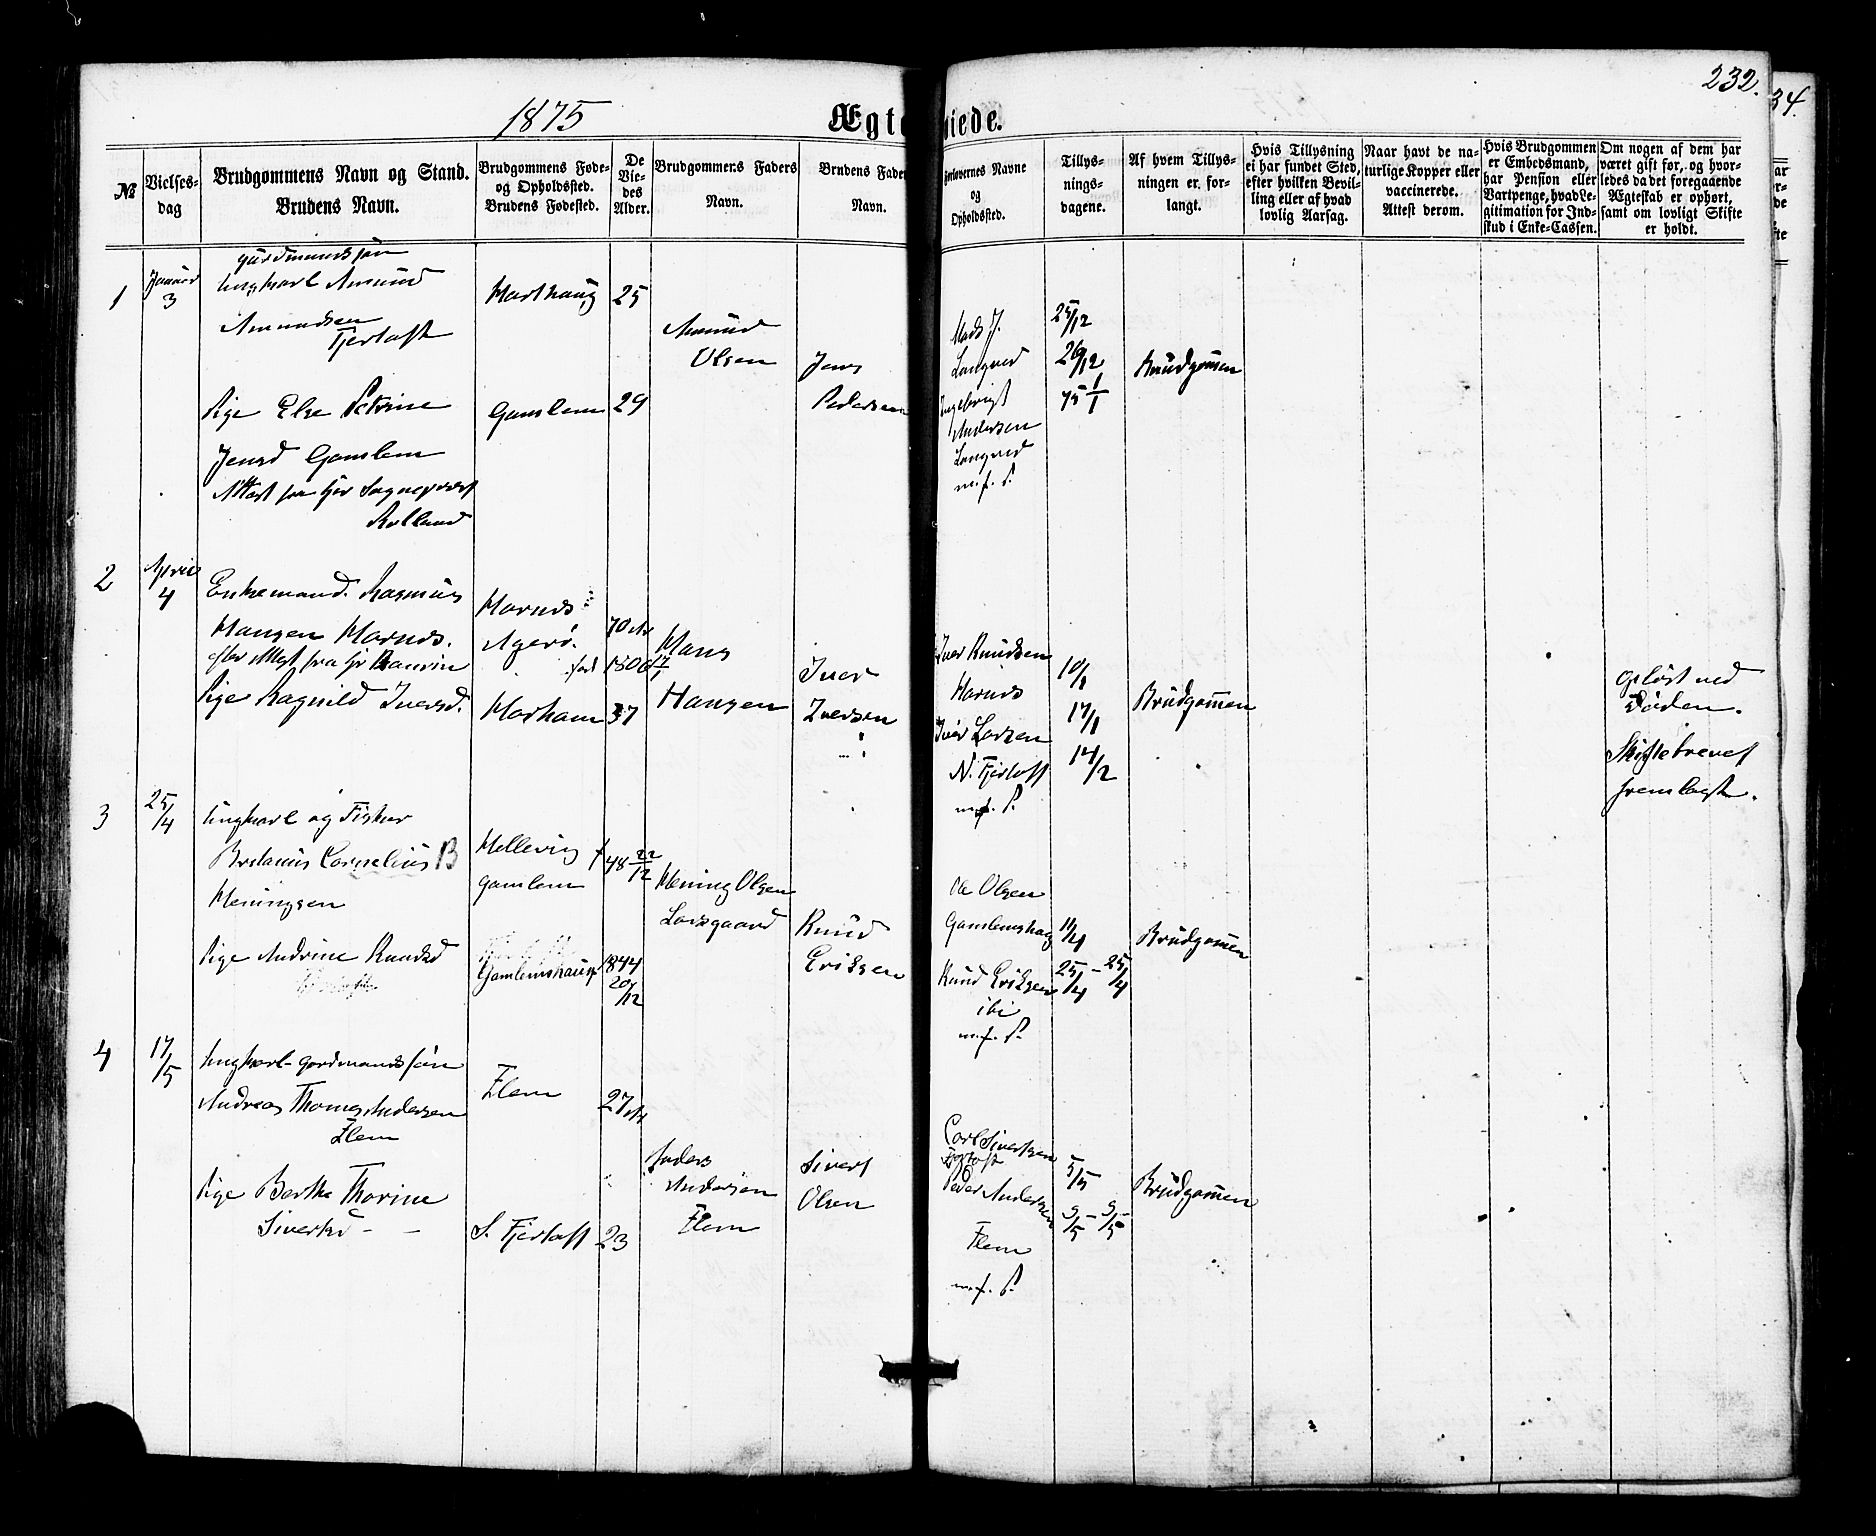 232.
34.
1875
Ægte viede.
№
Vielses-
dag
Brudgommens Navn og Stand.
Brudens Navn.
Brudgommens Føde-
og Opholdssted.
Brudens Fødested.
De
Vie-
des
Alder.
Brudgommens Faders
Navn.
Brudens Fader
Navn.
Forlovernes Navne
og
Opholdssted.
Tillys-
nings-
dagene.
Af hvem Tillys-
ningen er for-
langt.
Hvis Tillysning
ei har fundet Sted,
efter hvilken Bevil-
ling eller af hvad
lovlig Aarsag.
Naar havt de na-
turlige Kopper eller
vaccinerede.
Attest derom.
Hvis Brudgommen
er Embedsmand,
har Pension eller
Vartpenge, hvad Le-
gitimation for Ind-
skud i Enke-Cassen.
Om nogen af dem har
været gift før, og hvor-
ledes da det foregaaende
Ægteskab er ophørt,
samt om lovligt Skifte
er holdt.
1
Januar
3
gaardmandssøn
Ungkarl Amund
Amundsen
Fjertoft
Harhaug
25
Amund
Olsen
Pige Else Petrine
Jensd Gamlem
Attest fra hr Sogneprest
Rolland
Gamlem
29
Jens
Pedersen
Mads J.
Longved
Ingebrigt
Andersen
Longved
m.f. P.
25/12
26/12
75 1/1
Brudgommen
2
April
4
Enkemand Rasmus
Hansen Harnes.
efter Attest fra hr
Pige Ragnild Iversd.
Harnes
Agerø.
Harham
70 Ar
fød 1806
37
Hans
Hansen
Iver
Iversen
Iver Knudsen
Harnes
Iver Larsen
N. Fjertoft
m.f. P.
10/1
17/1
14/2
Brudgommen
opløst ved
Døden.
Skiftebrevet
fremlagt.
3
25/4
Ungkarl og Fisker
Cornelius B
Heningsen
Hellevig
Gamlem
f 48 22/12
Hening Olsen
Larsgaard
Pige Andrine Knudsd
Gamlemshaug
1844
20/12
Knud
Eriksen
Ole Olsen
Gamlemshaug
Knud Eriksen
ibi
m.f. P.
11/4
25/4 - 25/4
Brudgommen
4
17/5
Ungkarl gardmandssøn
Andreas Thomas Andersen
Flem
Flem
27 Ar
Anders
Andersen
Flem
Pige Berthe Thorine
Sivertsd - -
S. Fjertoft
23
Sivert
Olsen
Carl Sivertsen
Fjertoft
Peder Andersen
Flem
m.f. P.
5/5
9/5 - 9/5
Brudgommen